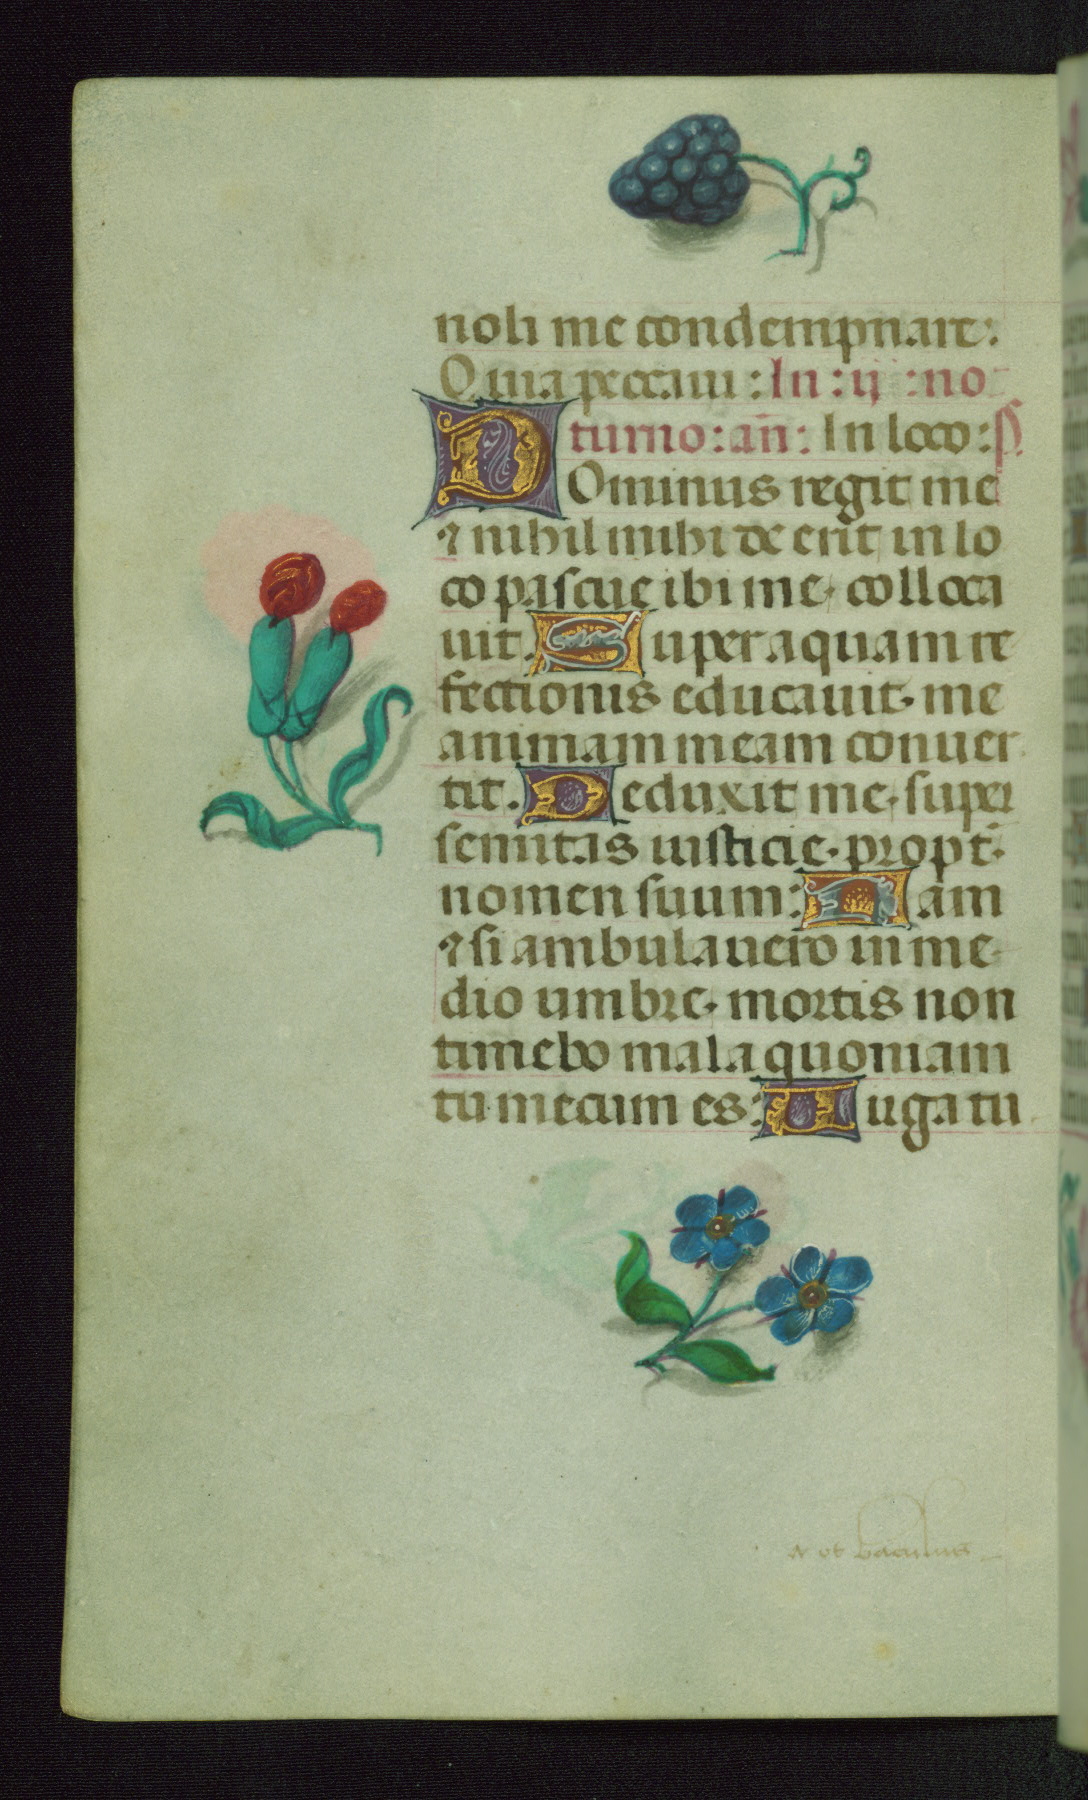 noli me condempnare:
Quia peccaui : In : ij : no
turno : an̄ : In loco : p̄s.
Dominus regit me
⁊ nihil mihi de erit in lo
co pascue ibi me colloca
uit. Super aquam re
fectionis educauit me
animam meam conuer
tit. Deduxit me super
semitas iusticie propt̄
nomen suum: Nam
⁊ si ambulauero in me
dio umbre mortis non
timebo mala quoniam
tu mecum es: Uirga tu
et baculus